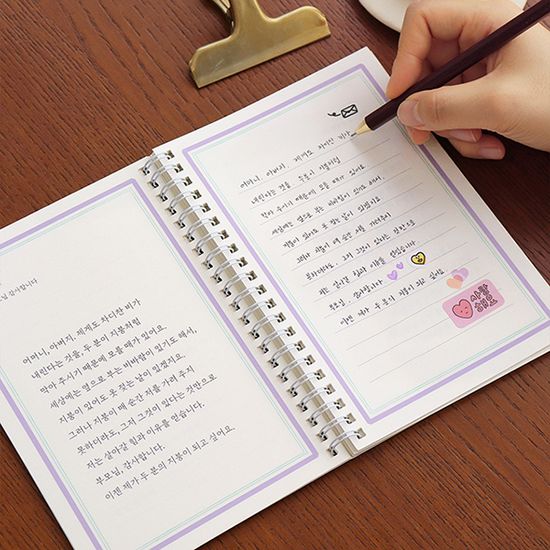 님 감사합니다
어머니, 아버지. 제게도 차디찬 비가
내린다는 것을, 두 분이 지붕처럼
막아 주시기 때문에 모를 때가 있어요.
세상에는 옆으로 부는 비바람이 있기도 해서,
지붕이 있어도 옷 젖는 날이 있겠지요.
그러나 지붕이 매 순간 저를 가려 주지
못하더라도, 그저 그것이 있다는 것만으로
저는 살아갈 힘과 이유를 얻습니다.
부모님, 감사합니다.
이젠 제가 두 분의 지붕이 되고 싶어요.
어머니, 아버지. 제게도 차디찬 비가
내린다는 것을 두 분이 지붕처럼
막아 주시기 때문에 모를 때가 있어요
세상에는 옆으로 부는 비바람이 있기도 해서,
지붕이 있어도 옷 젖는 날이 있겠지요
그러나 지붕이 매 순간 저를 가려주지
못하더라도, 그저 그것이 있다는 것만으로
저는 살아갈 힘과 이유를 얻습니다
부모님, 감사합니다
이젠 제가 두 분의 지붕이 되고 싶어요
사랑
해요